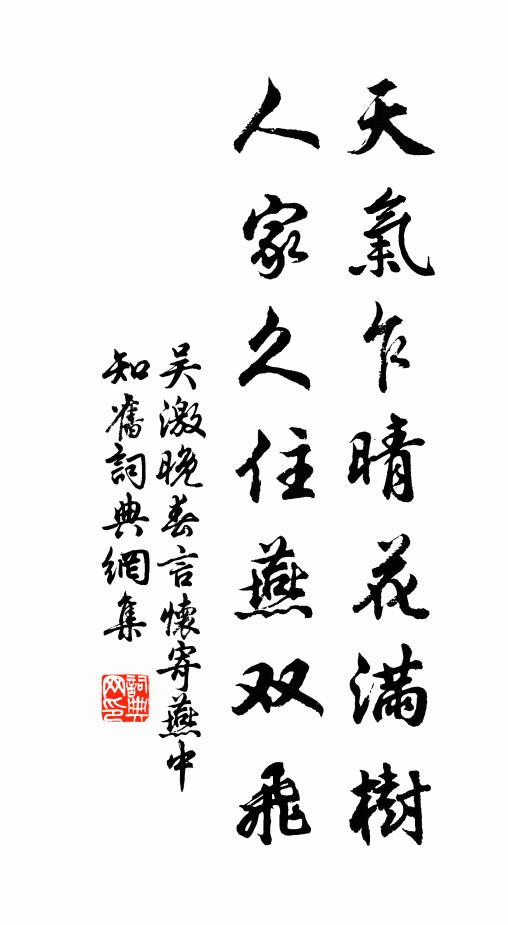 天氣乍晴花滿樹
人家久住燕双飛
吳激晚春言懷寄燕中
知舊詞典網集
詞典網印